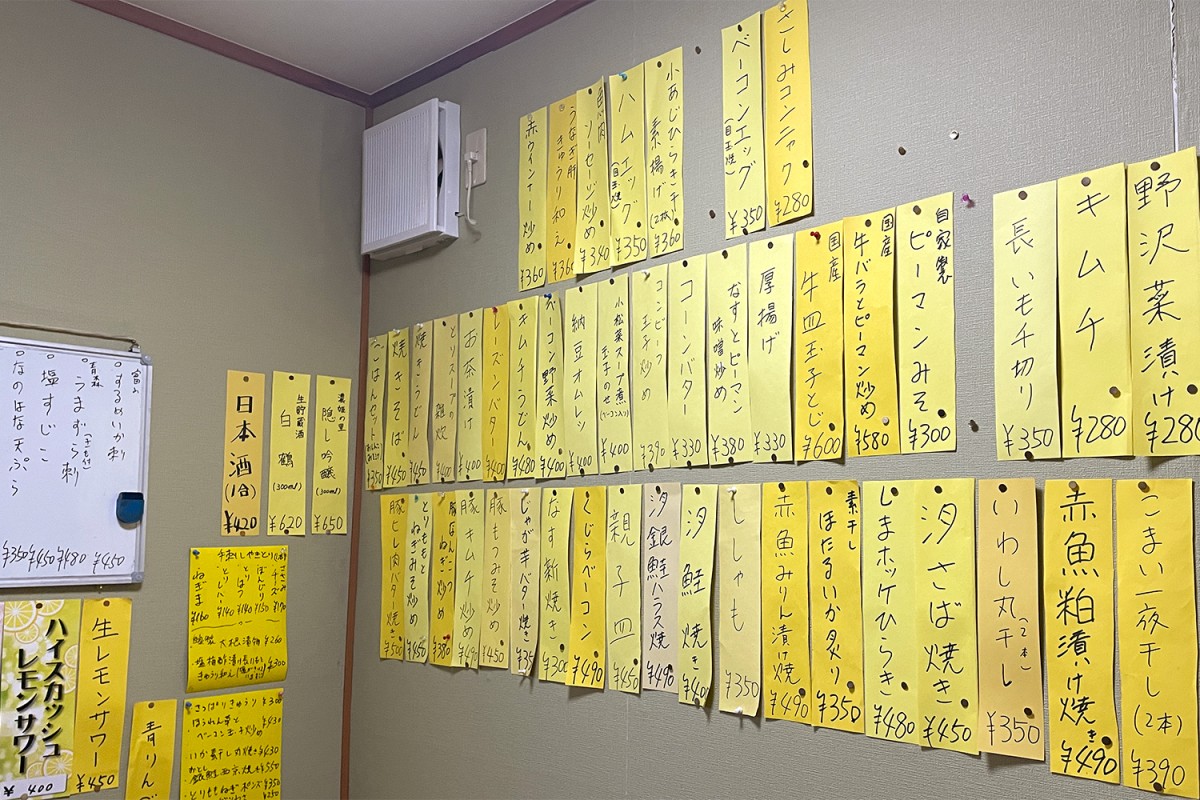 さしみコンニャク ¥280
ベーコンエッグ (目玉焼) ¥350
小あじひらき干 素揚げ (2枚) ¥360
ハムエッグ (目玉焼) ¥350
魚肉ソーセージ炒め ¥340
うなぎ肝 きゅうり和え ¥360
赤ウインナー炒め ¥360
野沢菜漬け ¥280
キムチ ¥280
長いも千切り ¥350
自家製 ピーマンみそ ¥300
国産 牛バラとピーマン炒め ¥580
国産 牛皿玉子とじ ¥600
厚揚げ ¥330
なすとピーマン 味噌炒め ¥380
コーンバター ¥330
コンビーフ 玉子炒め ¥390
小松菜スープ煮 玉子のせ (ベーコン入り) ¥400
納豆オムレツ ¥400
ベーコン野菜炒め ¥400
キムチうどん ¥480
レーズンバター ¥400
お茶漬け ¥400
とりスープの 雑炊 ¥400
焼きうどん ¥450
焼きそば ¥450
ごはんセット ¥350
こまい一夜干し (2本) ¥390
赤魚粕漬け焼き ¥490
いわし丸干し (2本) ¥350
汐さば焼き ¥450
しまホッケひらき ¥480
素干し ほたるいか炙り ¥350
赤魚みりん漬け焼 ¥490
ししゃも ¥350
汐鮭焼き ¥400
汐銀鮭ハラス焼 ¥490
親子皿 ¥450
くじらベーコン ¥490
なす新焼き ¥300
じゃが芋バター焼き ¥35
豚もつみそ炒め ¥450
豚キムチ炒め ¥490
豚なんこつ ねぎ炒め ¥380
とりももと ねぎみそ炒め ¥450
豚ヒレ肉バター焼き ¥500
濃姫の里 隠し吟醸 (300ml) ¥650
生貯蔵酒 白鶴 (300ml) ¥620
日本酒 (1合) ¥420
富山 するめいか刺 ¥450
青森 うまずら刺 (キモ付) ¥480
塩すじこ ¥450
なのはな天ぷら ¥350
ささみチーズ ¥190
ぼんじり ¥150
とりはつ ¥140
とりレバー ¥140
ねぎま ¥160
大根漬物 ¥260
¥300
さっぱりきゅうり ¥300
ほうれん草と ベーコン玉子炒め ¥430
いか素干し丸焼き ¥430
銀鮭西京焼 ¥550
とりももねぎポンズ ¥350
¥250
生レモンサワー ¥450
ハイスカッシュ レモンサワー ¥400
青りんご